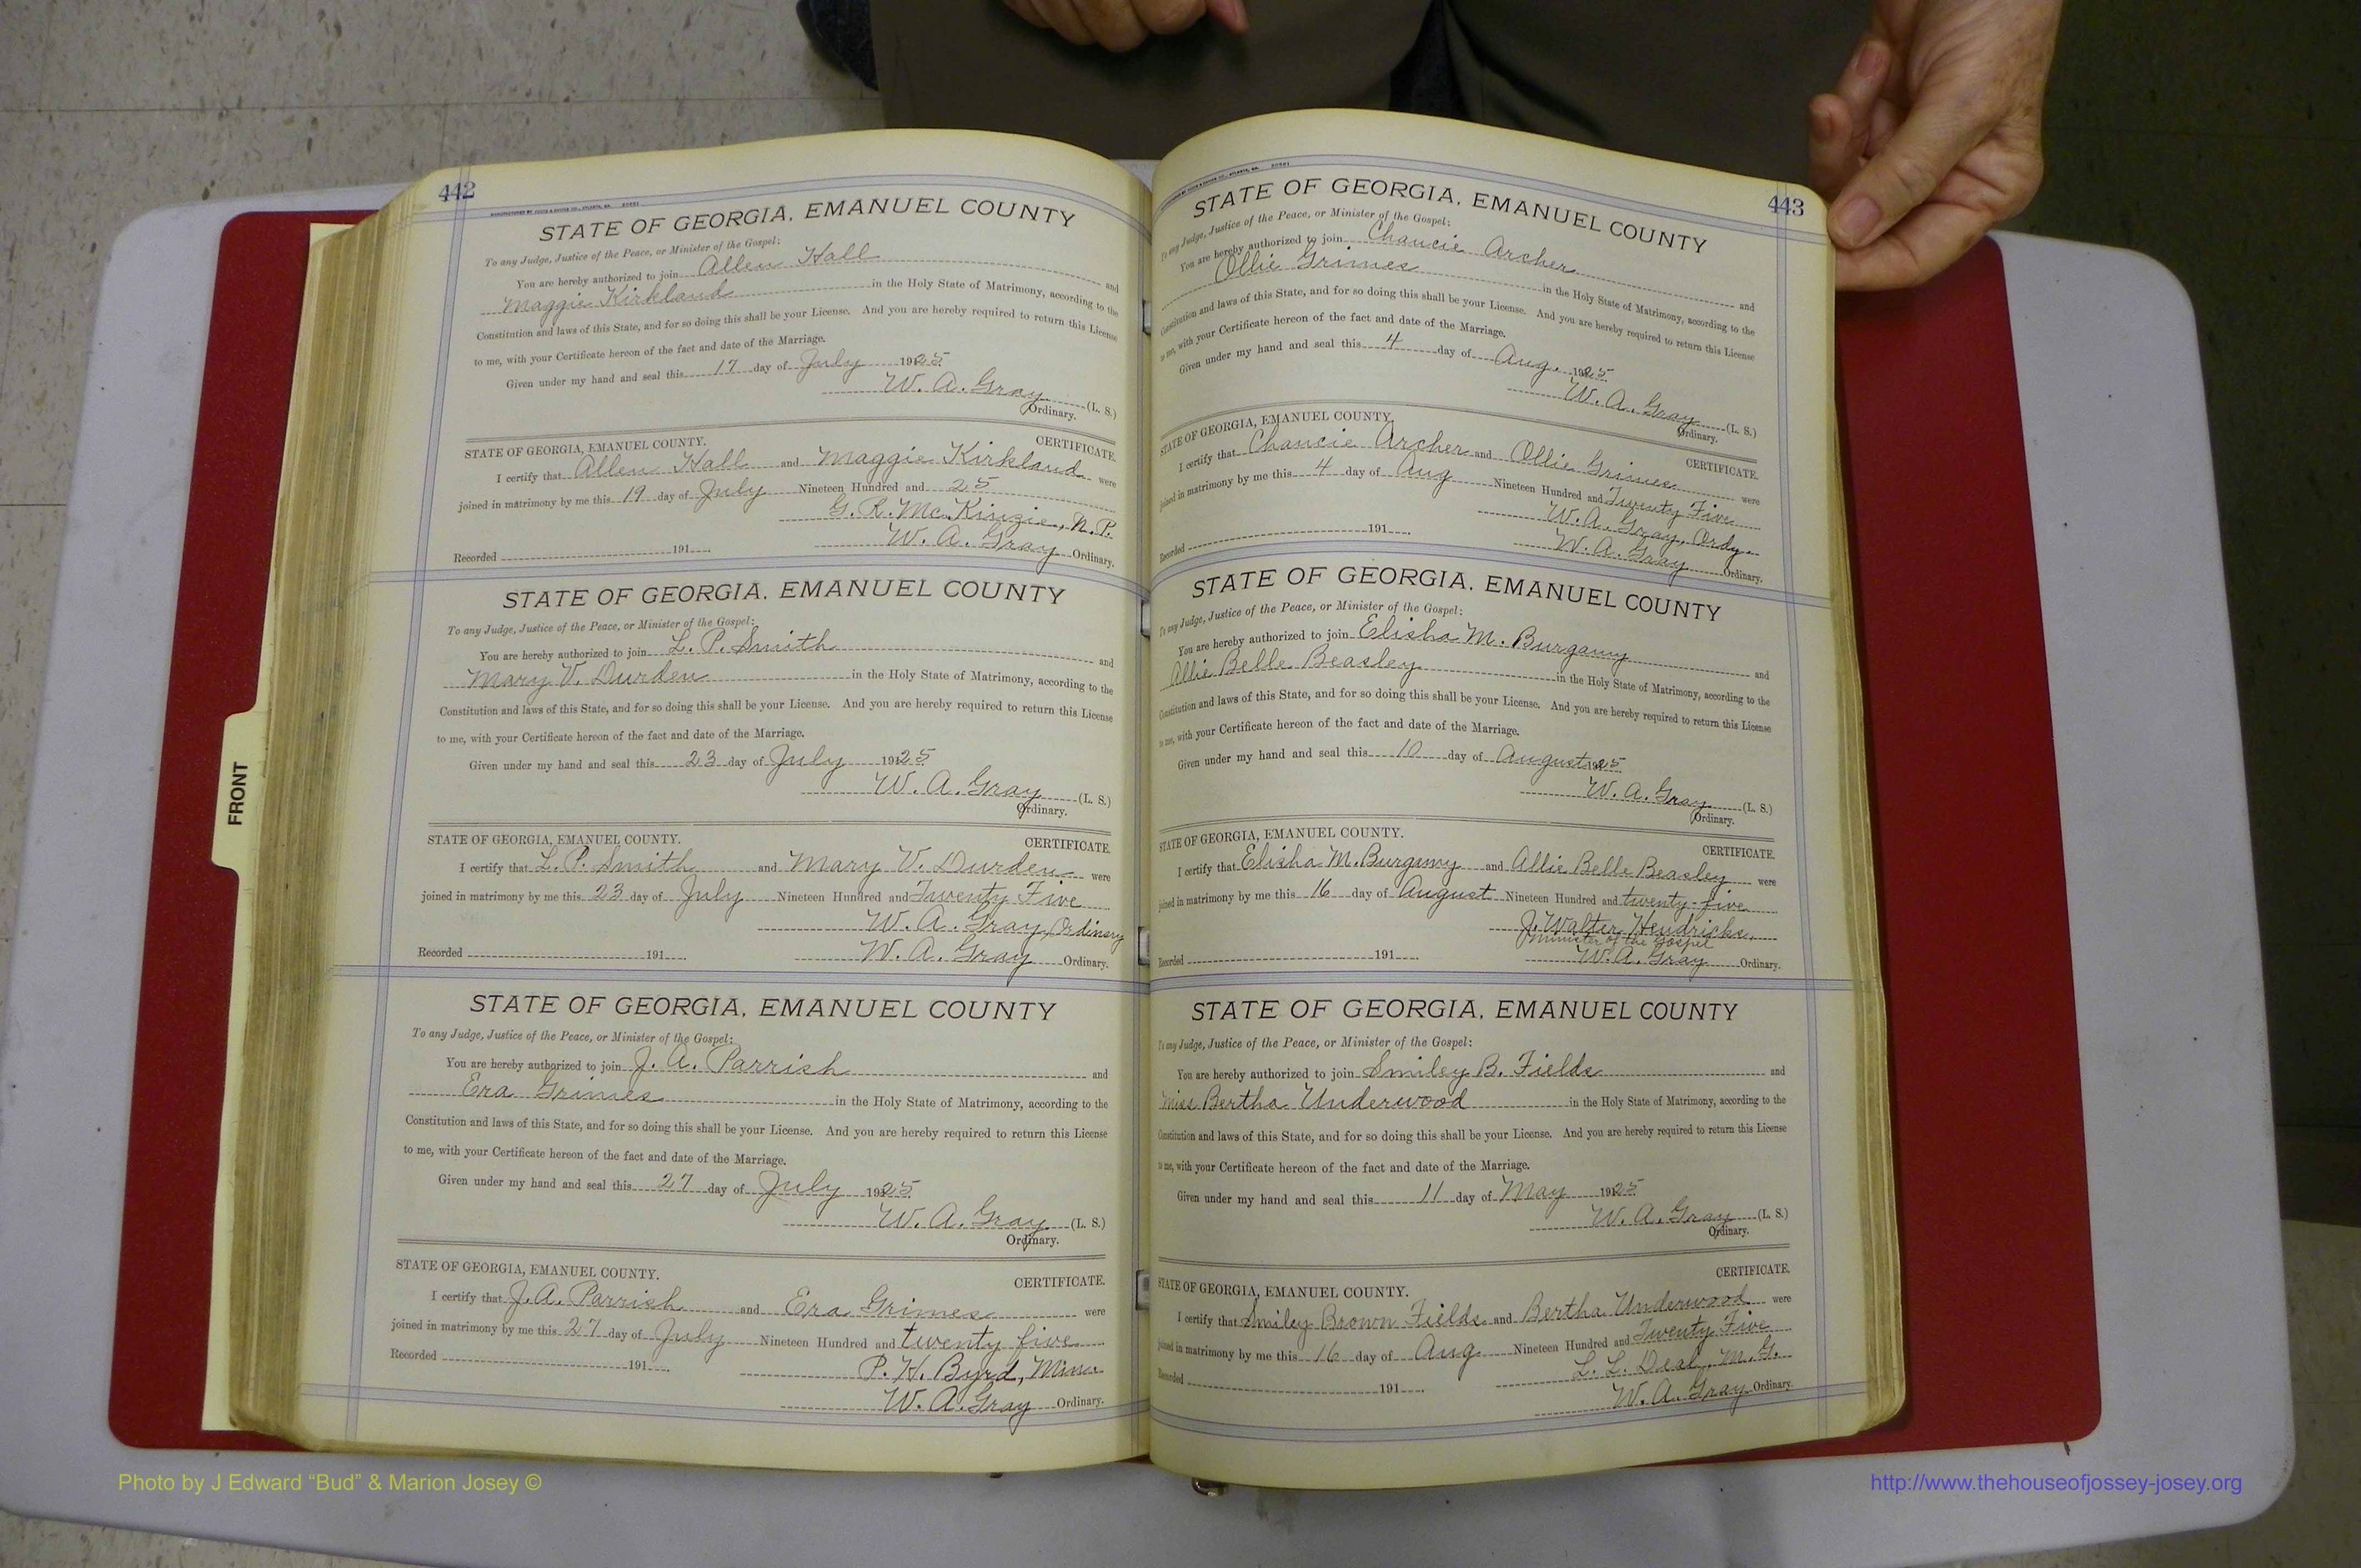 442
STATE OF GEORGIA, EMANUEL COUNTY
To any Judge, Justice of the Peace, or Minister of the Gospel:
You are hereby authorized to join Allen Hall and
Maggie Kirkland in the Holy State of Matrimony, according to the
Constitution and laws of this State, and for so doing this shall be your License. And you are hereby required to return this License
to me, with your Certificate hereon of the fact and date of the Marriage.
Given under my hand and seal this 17 day of July 1925
W. A. Gray (L. S.)
Ordinary.
STATE OF GEORGIA, EMANUEL COUNTY. CERTIFICATE.
I certify that Allen Hall and Maggie Kirkland were
joined in matrimony by me this 19 day of July Nineteen Hundred and 25
G. R. McKinzie, N. P.
Recorded 191 W. A. Gray Ordinary.
STATE OF GEORGIA, EMANUEL COUNTY
To any Judge, Justice of the Peace, or Minister of the Gospel:
You are hereby authorized to join L. P. Smith and
Mary V. Durden in the Holy State of Matrimony, according to the
Constitution and laws of this State, and for so doing this shall be your License. And you are hereby required to return this License
to me, with your Certificate hereon of the fact and date of the Marriage.
Given under my hand and seal this 23 day of July 1925
W. A. Gray (L. S.)
Ordinary.
STATE OF GEORGIA, EMANUEL COUNTY. CERTIFICATE.
I certify that L. P. Smith and Mary V. Durden were
joined in matrimony by me this 23 day of July Nineteen Hundred and Twenty Five
W. A. Gray, Ordinary
Recorded 191 W. A. Gray Ordinary.
STATE OF GEORGIA, EMANUEL COUNTY
To any Judge, Justice of the Peace, or Minister of the Gospel:
You are hereby authorized to join J. A. Parrish and
Era Grimes in the Holy State of Matrimony, according to the
Constitution and laws of this State, and for so doing this shall be your License. And you are hereby required to return this License
to me, with your Certificate hereon of the fact and date of the Marriage.
Given under my hand and seal this 27 day of July 1925
W. A. Gray (L. S.)
Ordinary.
STATE OF GEORGIA, EMANUEL COUNTY. CERTIFICATE.
I certify that J. A. Parrish and Era Grimes were
joined in matrimony by me this 27 day of July Nineteen Hundred and twenty five
Recorded 191 P. H. Byrd,
W. A. Gray Ordinary.
443
STATE OF GEORGIA, EMANUEL COUNTY
To any Judge, Justice of the Peace, or Minister of the Gospel:
You are hereby authorized to join Chancie Archer and
Ollie Grimes in the Holy State of Matrimony, according to the
Constitution and laws of this State, and for so doing this shall be your License. And you are hereby required to return this License
to me, with your Certificate hereon of the fact and date of the Marriage.
Given under my hand and seal this 4 day of Aug. 1925
W. A. Gray (L. S.)
Ordinary.
STATE OF GEORGIA, EMANUEL COUNTY. CERTIFICATE.
I certify that Chancie Archer and Ollie Grimes were
joined in matrimony by me this 4 day of Aug Nineteen Hundred and Twenty Five
W. A. Gray, Ordy.
Recorded 191 W. A. Gray Ordinary.
STATE OF GEORGIA, EMANUEL COUNTY
To any Judge, Justice of the Peace, or Minister of the Gospel:
You are hereby authorized to join Elisha M. Burgamy and
Allie Belle Beasley in the Holy State of Matrimony, according to the
Constitution and laws of this State, and for so doing this shall be your License. And you are hereby required to return this License
to me, with your Certificate hereon of the fact and date of the Marriage.
Given under my hand and seal this 10 day of August 1925
W. A. Gray (L. S.)
Ordinary.
STATE OF GEORGIA, EMANUEL COUNTY. CERTIFICATE.
I certify that Elisha M. Burgamy and Allie Belle Beasley were
joined in matrimony by me this 16 day of August Nineteen Hundred and twenty-five
J. Walter Hendricks,
Minister of the Gospel
Recorded 191 W. A. Gray Ordinary.
STATE OF GEORGIA, EMANUEL COUNTY
To any Judge, Justice of the Peace, or Minister of the Gospel:
You are hereby authorized to join Smiley B. Fields and
Miss Bertha Underwood in the Holy State of Matrimony, according to the
Constitution and laws of this State, and for so doing this shall be your License. And you are hereby required to return this License
to me, with your Certificate hereon of the fact and date of the Marriage.
Given under my hand and seal this 11 day of May 1925
W. A. Gray (L. S.)
Ordinary.
STATE OF GEORGIA, EMANUEL COUNTY. CERTIFICATE.
I certify that Smiley Brown Fields and Bertha Underwood were
joined in matrimony by me this 16 day of Aug Nineteen Hundred and Twenty Five
L. L. Deal, M. G.
Recorded 191 W. A. Gray Ordinary.
FRONT
Photo by J Edward “Bud” & Marion Josey ©
http://www.thehouseofjossey-josey.org